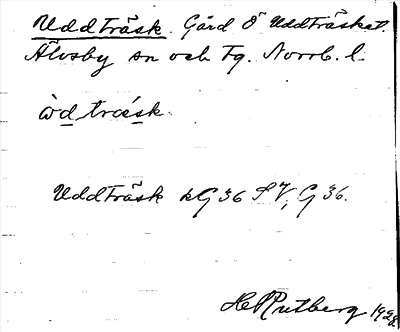 Uddträsk. Gård Ö Uddträsket.
Älvsby sn och Tg. Norrb. l.
òd træ̀sk.
Uddträsk kG 36 SV, G 36.
H Rutberg 1928